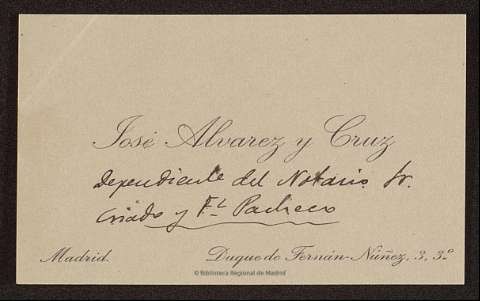 José Alvarez y Cruz
Dependiente del Notario Sr.
Criado y F. Pacheco
Madrid.
Duque de Fernán-Núñez, 3, 3.º
© Biblioteca Regional de Madrid